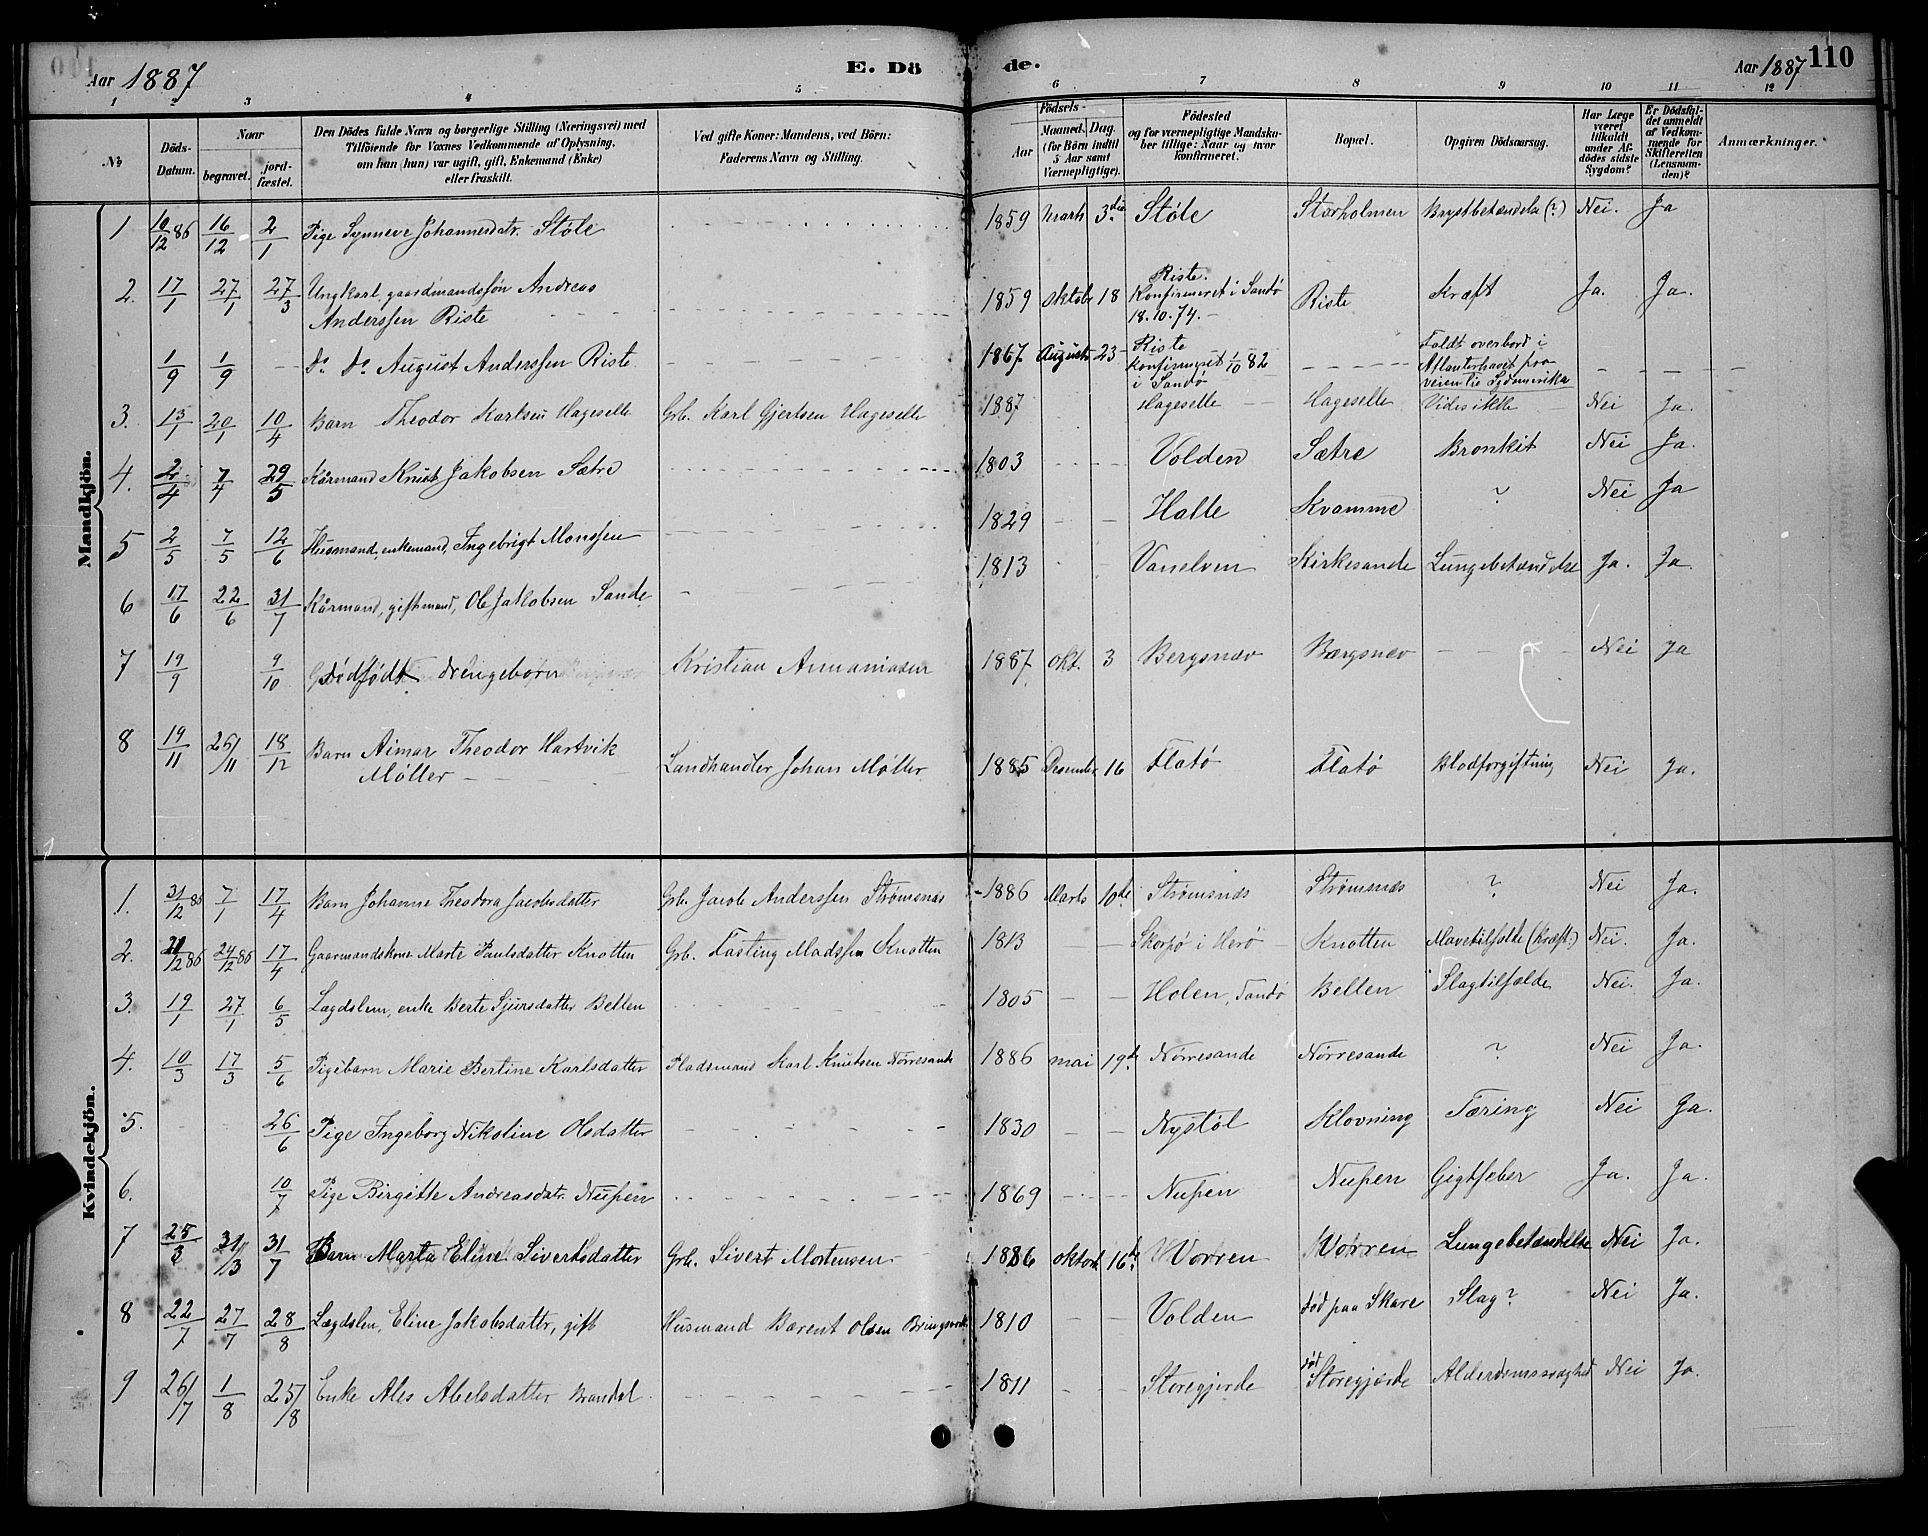 Aar 1887 E. Dö de. Aar 1887 110
1 2 3 4 5 6 7 8 9 10 11 12
№ Döds-Datum. Naar begravet. jordfæstet. Den Dödes fulde Navn og borgerlige Stilling (Næringsvei) med Tilföiende for Voxnes Vedkommende af Oplysning, om han (hun) var ugift, gift, Enkemand (Enke) eller fraskilt. Ved gifte Koner: Mandens, ved Börn: Faderens Navn og Stilling. Födsels- Aar Maaned. Dag. (for Börn indtil 5 Aar samt Værnepligtige). Födested og for værnepligtige Mandskaber tillige: Naar og hvor konfirmeret. Bopæl. Opgiven Dödsaarsag. Har Læge været tilkaldt under Afdödes sidste Sygdom? Er Dödsfaldet anmeldt af Vedkommende for Skifteretten (Lensmanden)? Anmærkninger.
Mandkjön.
1 10/12 86 16/12 2/1 Pige Synneve Johannesdtr. Støle 1859 Marts 3die Støle Storholmen Brystbetændelse (?) Nei. Ja
2. 17/1 27/1 27/3 Ungkarl, gaardmandssøn Andreas 1859 Oktobr 18 Riste. Konfirmeret i Sandø 18.10.74. Riste Kræft Ja. Ja.
Anderssen Riste
1/9 1/9 Do Do August Anderssen Riste 1867 August 23 Riste Konfirmeret 1/10 82 i Sandø Faldt overbord i Atlanterhavet paa veien til Sydamerika
3. 13/1 20/1 10/4 Barn Theodor Karlsen Hageselle Grb. Karl Gjertsen Hageselle 1887 Hageselle Hageselle Vides ikke Nei Ja.
4. 2/4 7/4 29/5 Kårmand Knut Jakobsen Sætre 1803 Volden Sætre Bronkit Nei Ja.
5 2/5 7/5 12/6 Husmand, enkemand, Ingebrigt Monssen 1829 Halle Kvamme ? Nei Ja
6 17/6 22/6 31/7 Kårmand, giftmand, Ole Jakobsen Sande 1813 Vanelven Kirkesande Lungebetændelse Ja. Ja.
7 19/9 9/10 Dødfødt drengebørn Kristian Annaniasen 1887 Okt. 3 Bergsnæv Bergsnæv Nei Ja
8 19/11 26/11 18/12 Barn Aimar Theodor Hartvik Landhandler Johan Møller 1885 December 16 Flatø Flatø Blodforgiftning Nei Ja.
Møller
Kvindekjön.
1. 31/12 86 7/1 17/4 Barn Johanne Theodora Jacobsdatter Grb. Jacob Anderssen Strømsnæs 1886 Marts 10de Strømsnæs Strømsnæs ? Nei Ja.
2. 21/12 86 24/12 86 17/4 Gaarmandskone Marte Paulsdatter Knotten Grb. Fasting Madssen Knotten 1813 Skorpø i Herø Knotten Mavetilfælde (Kræft?) Nei. Ja.
3. 19/1 27/1 6/5 Lægdslem, enke Berte Sjursdatter Belten 1805 Holen, Sandø Belten Slagtilfælde Nei. Ja.
4. 10/3 17/3 5/6 Pigebarn Marie Bertine Karlsdatter Pladsmand Karl Knutsen Nørresande 1886 Mai 19de Nørresande Nørresande ? Nei Ja.
5. 26/6 Pige Ingeborg Nikoline Olsdatter 1830 Nystøl Klovning Tæring Nei Ja.
6. 10/7 Pige Birgitte Andreasdtr. Nupen 1869 Nupen Nupen Gigtfeber Ja. Ja.
7 25/3 31/3 31/7 Barn Marta Eline Sivertsdatter Grb. Sivert Mortensen 1886 Oktobr 16de Worren Worren Lungebetændelse Nei Ja.
8 22/7 27/7 28/8 Lægdslem, Eline Jakobsdatter, gift Husmand Barent Olsen 1810 Volden død paa Skare Slag? Nei Ja.
9 26/7 1/8 25/8 Enke Ales Abelsdatter Brandal 1811 Storegjerde død Storegjerde Alderdomssvaghed Nei Ja.